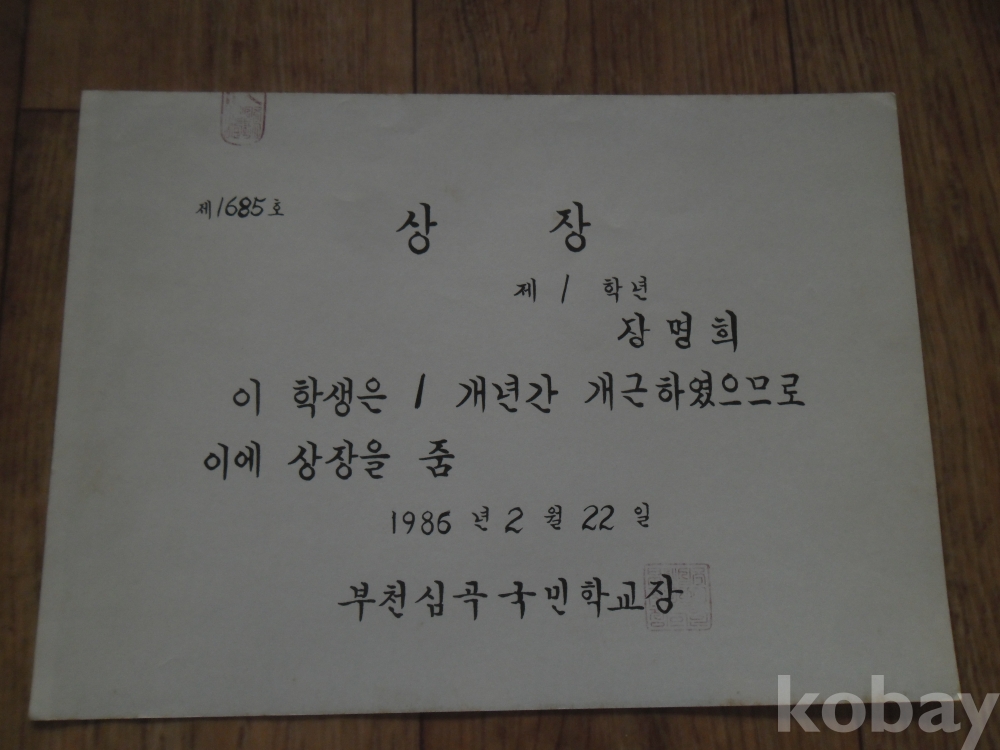 제1685호
상 장
제 1 학년
장명희
이 학생은 1 개년간 개근하였으므로
이에 상장을 줌
1986 년 2 월 22 일
부천심곡국민학교장
kobay